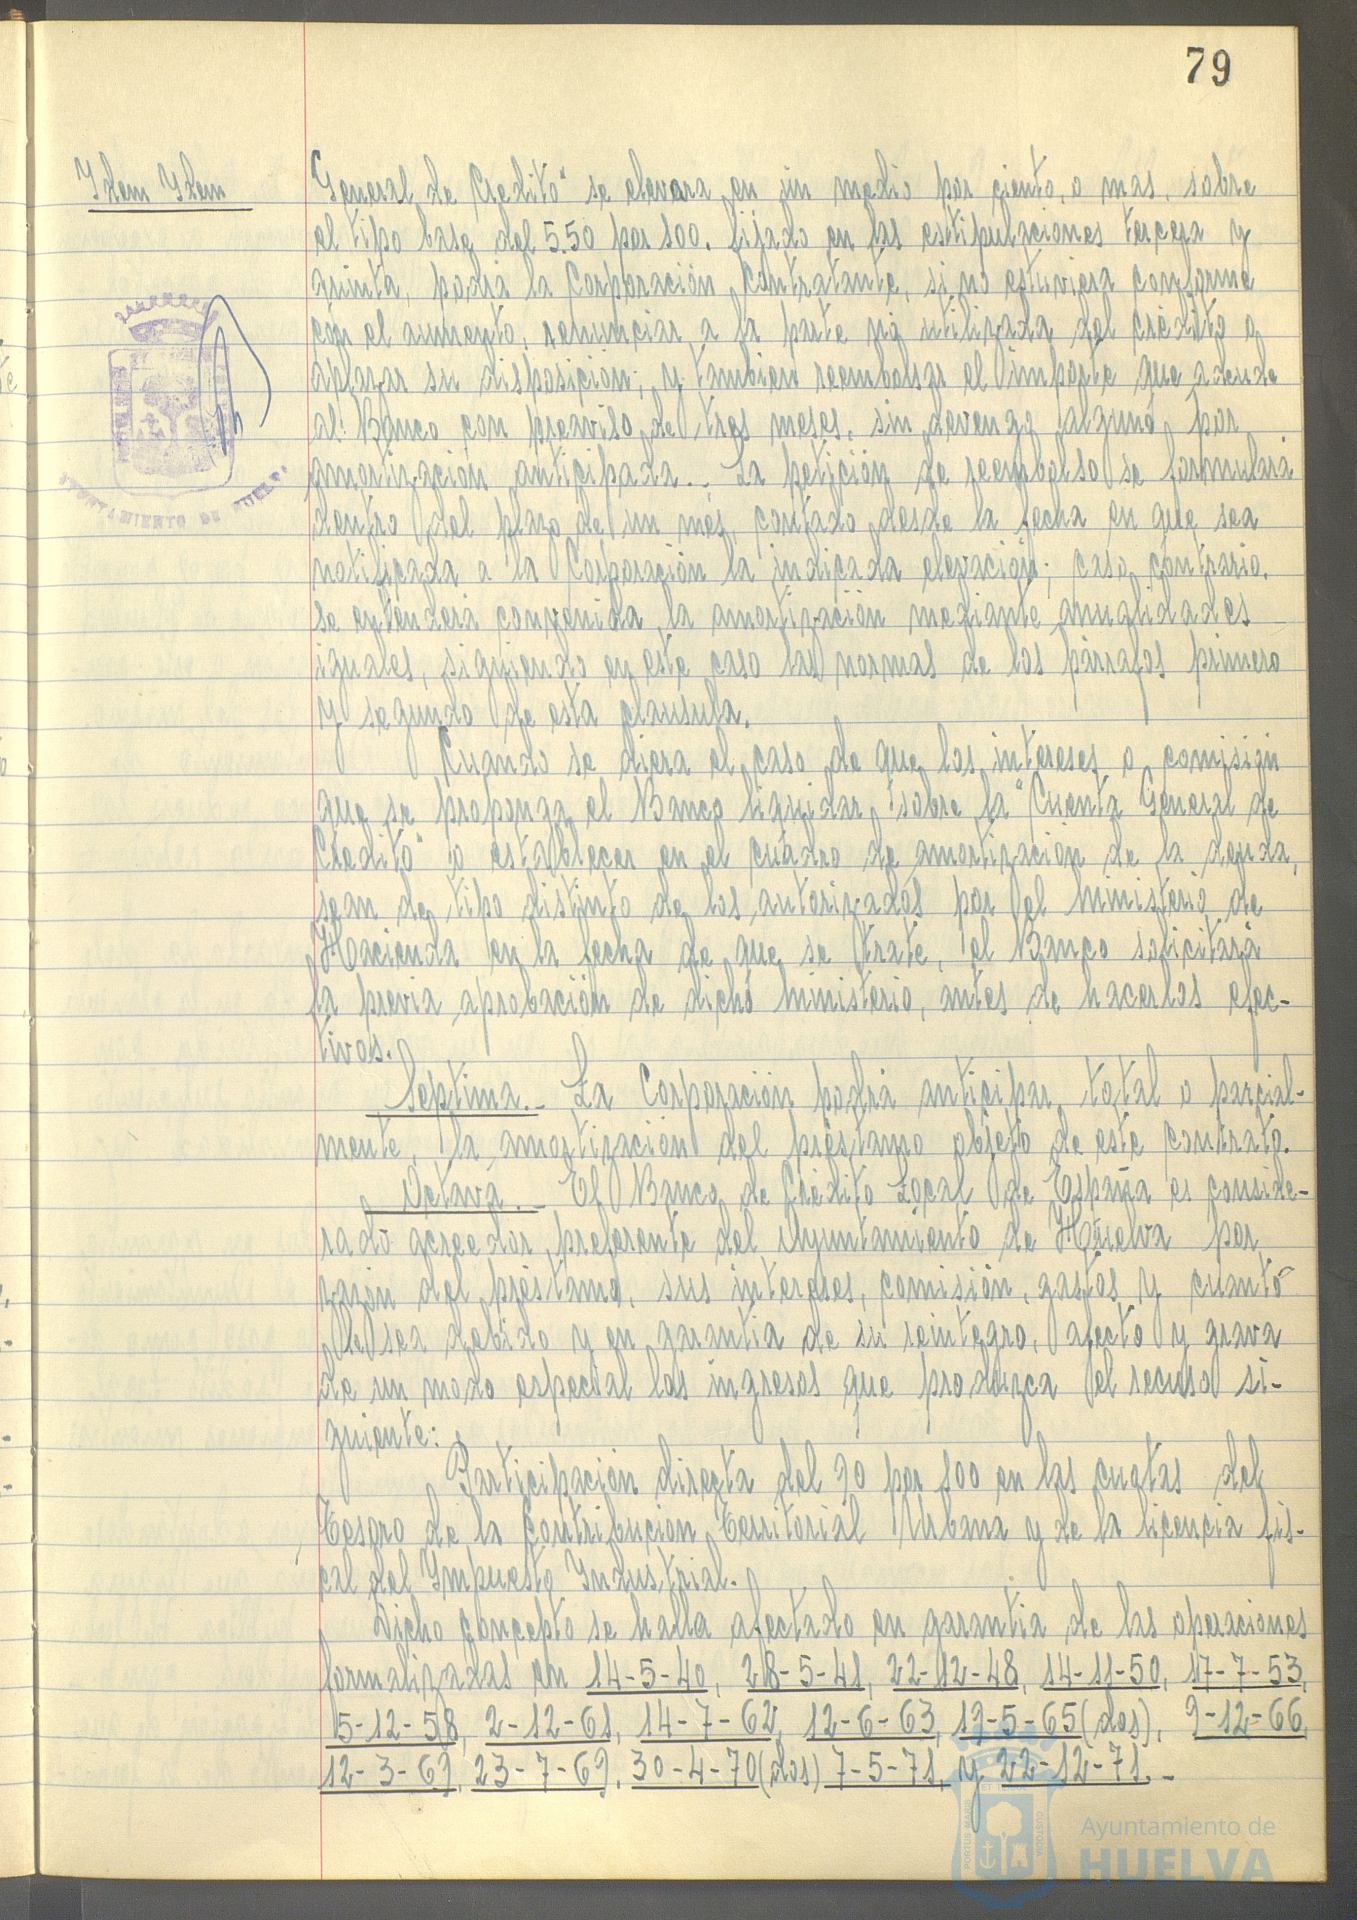 79
Idem Idem
General de Crédito" se elevara en un medio por ciento, o mas, sobre
el tipo base del 5.50 por 100, fijado en las estipulaciones tercera y
quinta, podrá la Corporación Contratante, si no estuviera conforme
con el aumento, renunciar a la parte no utilizada del crédito o
aplazar su disposición; y tambien reembolsar el importe que adeude
al Banco con preaviso de tres meses, sin devengo alguno por
amortización anticipada.- La petición de reembolso se formulará
dentro del plazo de un mes, contado desde la fecha en que sea
notificada a la Corporación la indicada elevación; caso contrario,
se entenderá convenida la amortización mediante anualidades
iguales, siguiendo en este caso las normas de los párrafos primero
y segundo de esta clausula.
Cuando se diera el caso de que los intereses o comisión
que se proponga el Banco liquidar sobre la "Cuenta General de
Crédito" o establecer en el cuadro de amortización de la deuda,
sean de tipo distinto de los autorizados por el Ministerio de
Hacienda en la fecha de que se trate, el Banco solicitará
la previa aprobación de dicho Ministerio, antes de hacerlos efec-
tivos.
Septima.- La Corporación podrá anticipar total o parcial-
mente, la amortización del préstamo objeto de este contrato.
Octava.- El Banco de Crédito Local de España es conside-
rado acreedor preferente del Ayuntamiento de Huelva por
razón del préstamo, sus intereses, comisión, gastos y cuanto
le sea debido y en garantia de su reintegro, afecto y grava
de un modo especial los ingresos que produzca el recurso si-
guiente:
Participación directa del 90 por 100 en las cuotas del
Tesoro de la Contribución Territorial Urbana y de la licencia fis-
cal del Impuesto Industrial.
Dicho concepto se halla afectado en garantia de las operaciones
formalizadas en 14-5-40, 28-5-41, 22-12-48, 14-11-50, 17-7-53,
5-12-58, 2-12-61, 14-7-62, 12-6-63, 19-5-65 (dos), 9-12-66,
12-3-69, 23-7-69, 30-4-70 (dos) 7-5-71, y 22-12-71.-
AYUNTAMIENTO DE HUELVA
PORTUS MARIS ET TERRAE CUSTODIA
Ayuntamiento de
HUELVA